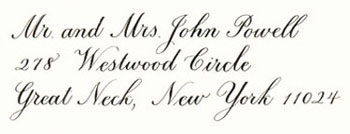 Mr. and Mrs. John Powell
278 Westwood Circle
Great Neck, New York 11024